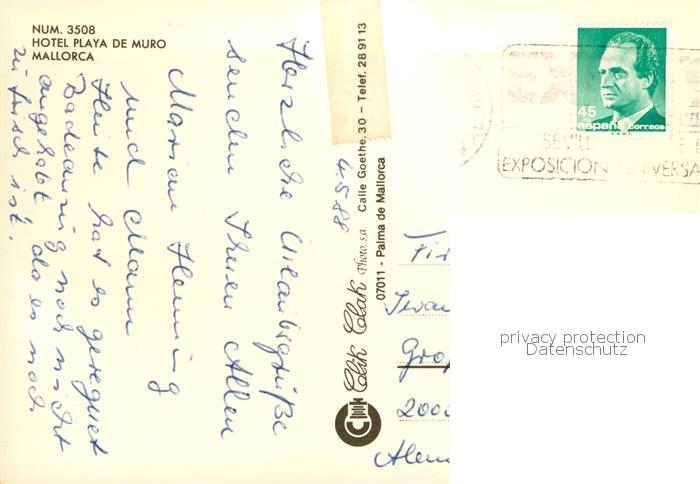 NUM. 3508
HOTEL PLAYA DE MURO
MALLORCA
Herzliche Urlaubsgrüße
senden Ihnen Allen
Marion Henning
und Mann
Heute hat es geregnet
Badeanzug noch nicht
angehabt, da es noch
zu frisch ist.
4-5-88
Clik Clak Photo, s.a. Calle Goethe, 30 - Telef. 28 91 13
07011 - Palma de Mallorca
45
españa correos
SEVI
EXPOSICION UNIVERSA
Fir
Gro
2000
Alem
privacy protection
Datenschutz